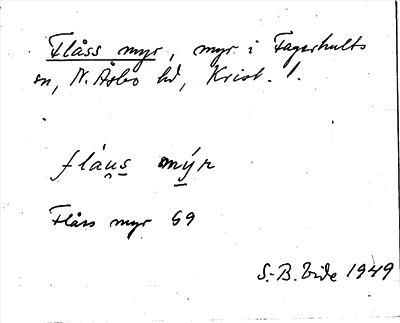 Flåss myr, myr i Fagerhults
sn, N. Åsbo hd, Krist. l.
fláu̯s mýr
Flåss myr 69
S.-B. Vide 1949